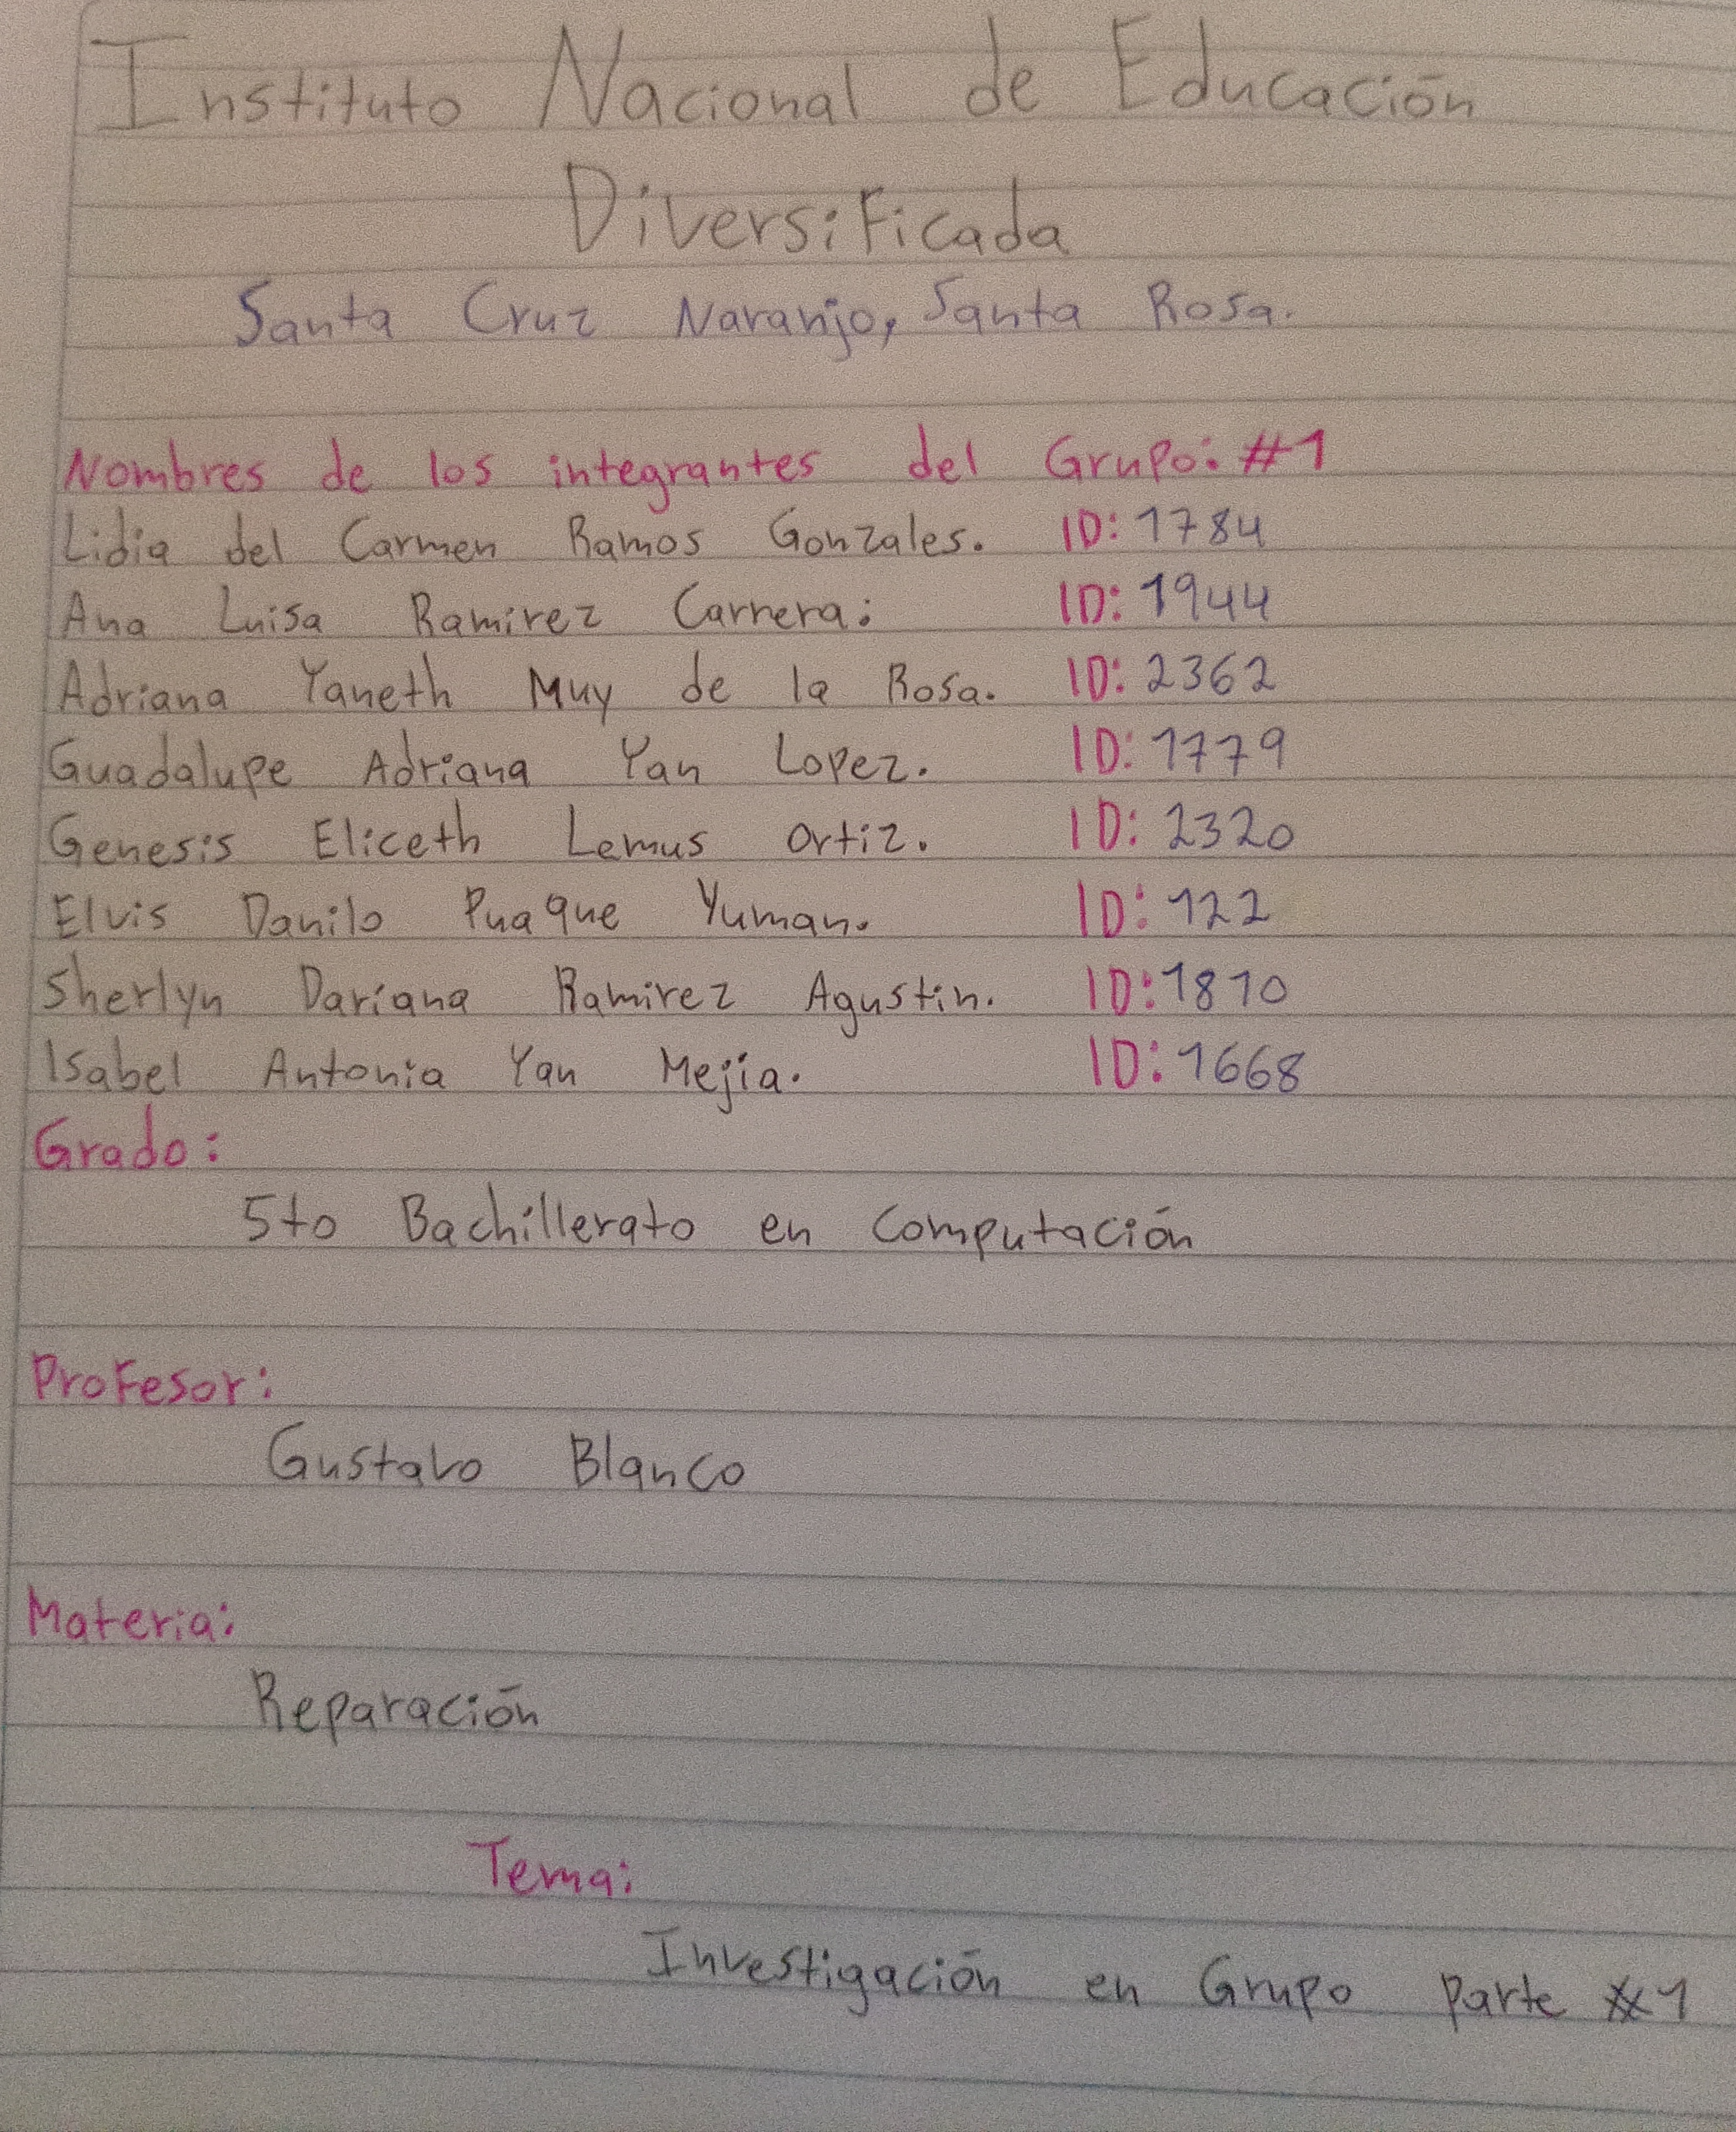 Instituto Nacional de Educación
Diversificada
Santa Cruz Naranjo, Santa Rosa.
Nombres de los integrantes del Grupo: #1
Lidia del Carmen Ramos Gonzales. ID: 1784
Ana Luisa Ramirez Carrera: ID: 1944
Adriana Yaneth Muy de la Rosa. ID: 2362
Guadalupe Adriana Yan Lopez. ID: 1779
Genesis Eliceth Lemus Ortiz. ID: 2320
Elvis Danilo Puaque Yuman. ID: 122
Sherlyn Dariana Ramirez Agustin. ID: 1810
Isabel Antonia Yan Mejia. ID: 1668
Grado:
5to Bachillerato en Computación
Profesor:
Gustavo Blanco
Materia:
Reparación
Tema:
Investigación en Grupo Parte #1